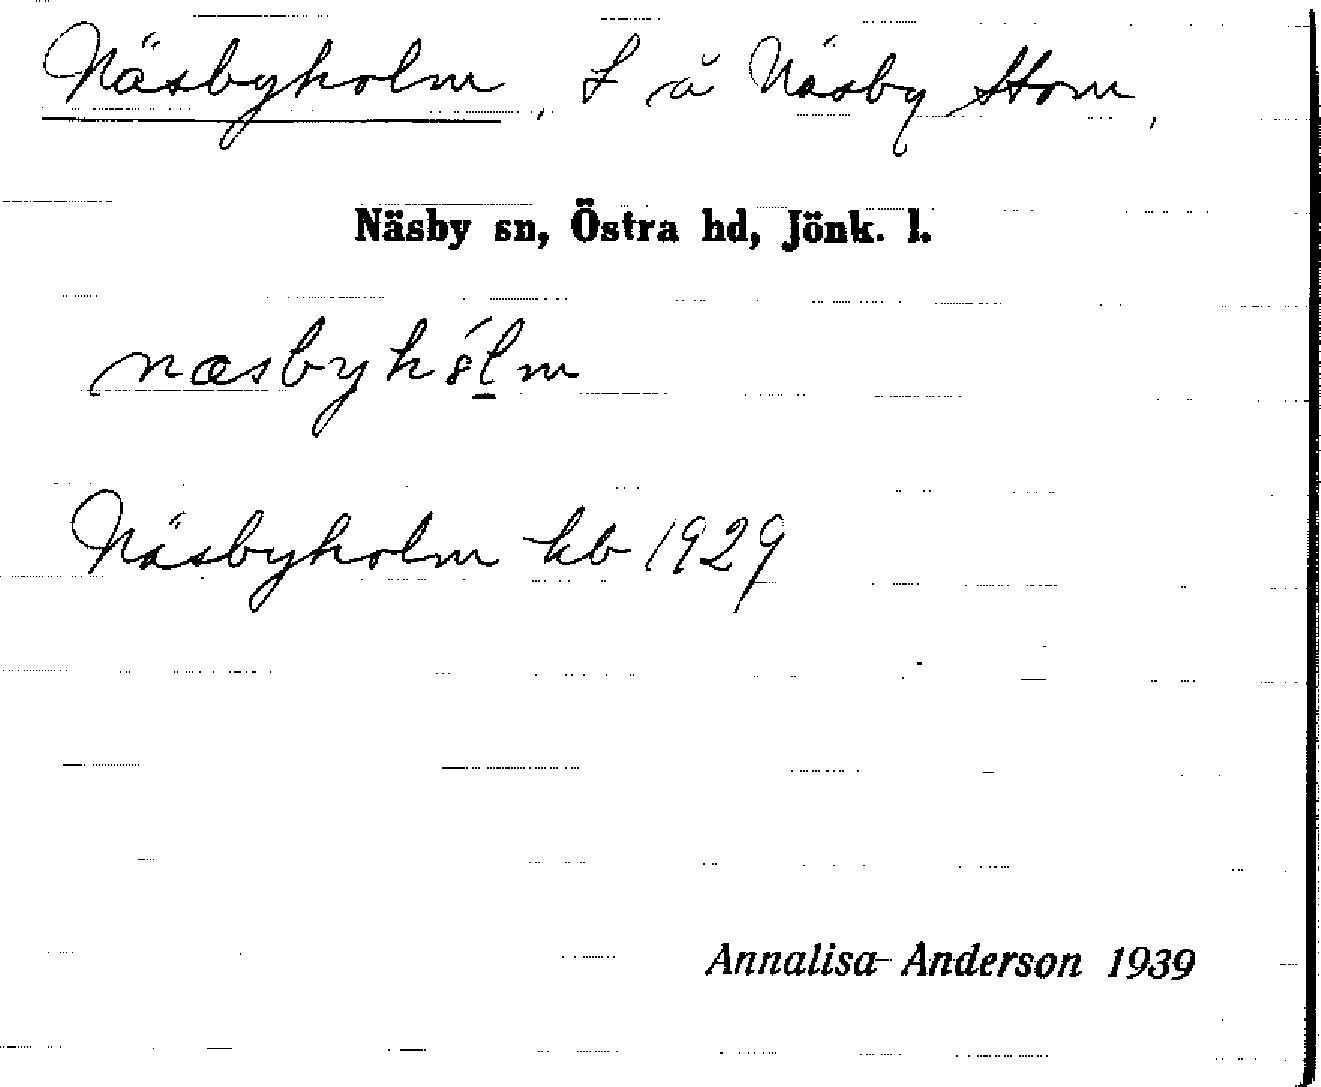 Näsbyholm, L å Näsby Stom,
Näsby sn, Östra hd, Jönk. l.
næsbyhólm
Näsbyholm kb 1929
Annalisa Anderson 1939